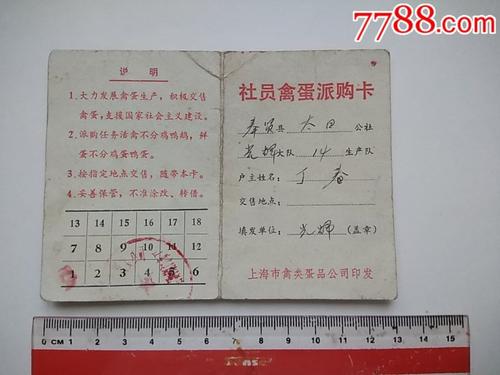 7788.com
说 明
1.大力发展禽蛋生产，积极交售
禽蛋，支援国家社会主义建设。
2.派购任务活禽不分鸡鸭鹅，鲜
蛋不分鸡蛋鸭蛋。
3.按指定地点交售，随带本卡。
4.妥善保管，不准涂改、转借。
13 14 15 16 17 18
7 8 9 10 11 12
1 2 3 4 5 6
社员禽蛋派购卡
奉贤县 太日 公社
光辉大队 14 生产队
户主姓名：丁春
交售地点：
填发单位：光辉（盖章）
上海市禽类蛋品公司印发
0 CM 1 2 3 4 5 6 7 8 9 10 11 12 13 14 15